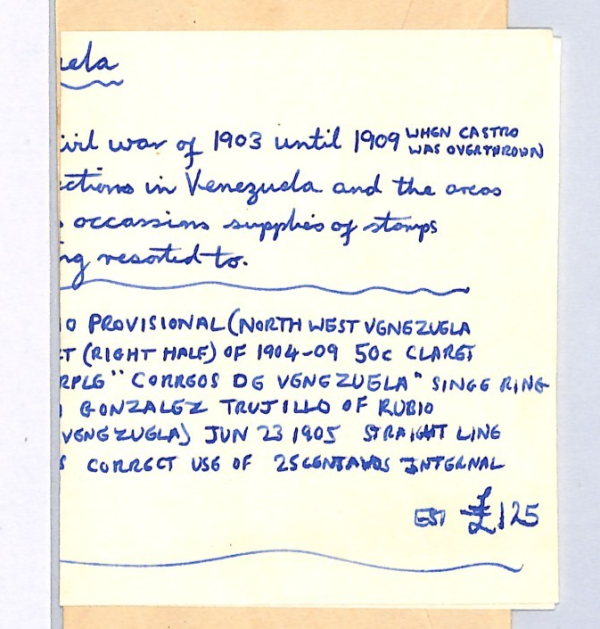 uela
ivil war of 1903 until 1909 WHEN CASTRO
WAS OVERTHROWN
ctions in Venezuela and the areas
occassions supplies of stamps
ng resorted to.
IO PROVISIONAL (NORTH WEST VENEZUELA
T (RIGHT HALF) OF 1904-09 50c CLARET
RPLE "CORREOS DE VENEZUELA" SINGE RING
GONZALEZ TRUJILLO OF RUBIO
VENEZUELA) JUN 23 1905 STRAIGHT LINE
S CORRECT USE OF 25 CENTAVOS INTERNAL
EST £125